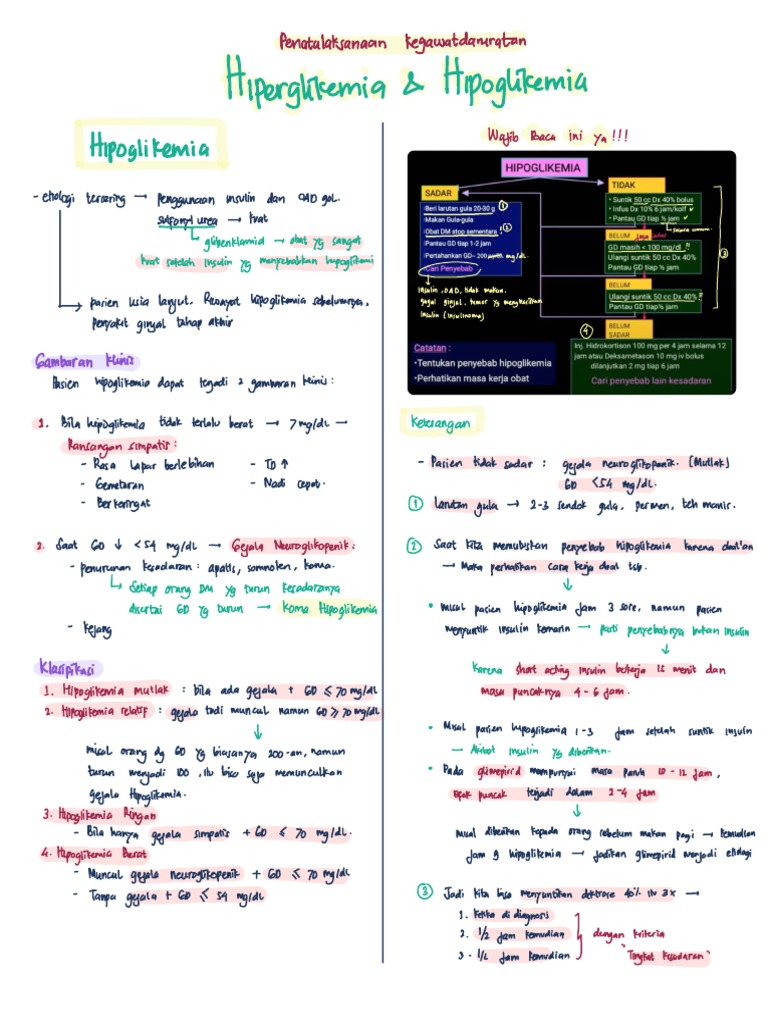 Penatalaksanaan kegawatdaruratan
Hiperglikemia & Hipoglikemia
Hipoglikemia
- etiologi tersering → penggunaan insulin dan OAD gol.
sulfonyl urea → kuat
↳ glibenklamid → obat yg sangat
kuat setelah insulin yg menyebabkan hipoglikemi
→ pasien lusia lanjut. Riwayat hipoglikemia sebelumnya,
penyakit ginjal tahap akhir
Gambaran klinis
Pasien hipoglikemia dapat terjadi 2 gambaran klinis:
1. Bila hipoglikemia tidak terlalu berat → 7 mg/dl →
Ransangan simpatis:
- Rasa lapar berlebihan - TD ↑
- Gemetaran - Nadi cepat.
- Berkeringat
2. Saat GD ↓ < 54 mg/dl → Gejala Neuroglikopenik:
- penurunan kesadaran: apatis, somnolen, koma.
↳ Setiap orang DM yg turun kesadaranya
disertai GD yg turun → koma Hipoglikemia
- kejang
Klasifikasi
1. Hipoglikemia mutlak : bila ada gejala + GD ≤ 70 mg/dL
2. Hipoglikemia relatif : gejala tadi muncul namun GD ≥ 70 mg/dL
↓
misal orang dg GD yg biasanya 200-an, namun
turun menjadi 100, itu bisa saja memunculkan
gejala Hipoglikemia.
3. Hipoglikemia Ringan
- Bila hanya gejala simpatis + GD ≤ 70 mg/dL.
4. Hipoglikemia Berat
- Muncul gejala neuroglikopenik + GD ≤ 70 mg/dL
- Tanpa gejala + GD ≤ 54 mg/dL
Wajib Baca ini ya !!!
HIPOGLIKEMIA
SADAR
·Beri larutan gula 20-30 g ①
·Makan Gula-gula
·Obat DM stop sementara ! ②
·Pantau GD tiap 1-2 jam
·Pertahankan GD~ 200 mg/dL.
·Cari Penyebab
insulin, OAD, tidak makan,
gagal ginjal, tumor yg menghasilkan
insulin (insulinoma)
TIDAK
• Suntik 50 cc Dx 40% bolus
• Infus Dx 10% 6 jam/kolf ✓
• Pantau GD tiap ½ jam ✓
BELUM
GD masih < 100 mg/dl !!
Ulangi suntik 50 cc Dx 40%
Pantau GD tiap ½ jam
③
BELUM
Ulangi suntik 50 cc Dx 40% !!
Pantau GD tiap ½ jam
④
BELUM
SADAR
Inj. Hidrokortison 100 mg per 4 jam selama 12
jam atau Deksametason 10 mg iv bolus
dilanjutkan 2 mg tiap 6 jam
Cari penyebab lain kesadaran
Catatan :
•Tentukan penyebab hipoglikemia
•Perhatikan masa kerja obat
Keterangan
- Pasien tidak sadar : gejala neuroglikopenik. [Mutlak]
GD < 54 mg/dL.
① Larutan gula → 2-3 sendok gula, permen, teh manis.
② Saat kita memutuskan penyebab hipoglikemia karena obat"an
→ Maka perhatikan cara kerja obat tsb.
↓
• misal pasien hipoglikemia jam 3 sore, namun pasien
menyuntik insulin kemarin → pasti penyebabnya bukan insulin
↓
karena short acting insulin bekerja 15 menit dan
masa puncaknya 4-6 jam.
• Misal pasien hipoglikemia 1-3 jam setelah suntik insulin
→ Akibat insulin yg diberikan.
• Pada glimepirid mempunyai masa paruh 10-12 jam,
efek puncak terjadi dalam 2-4 jam
↓
misal diberikan kepada orang sebelum makan pagi → kemudian
jam 9 hipoglikemia → jadikan glimepirid menjadi etiologi
③ Jadi kita bisa menyuntikan dektrose 40% itu 3x →
1. ketika di diagnosis
2. 1/2 jam kemudian
3. 1/2 jam kemudian
dengan kriteria
"Tingkat kesadaran"